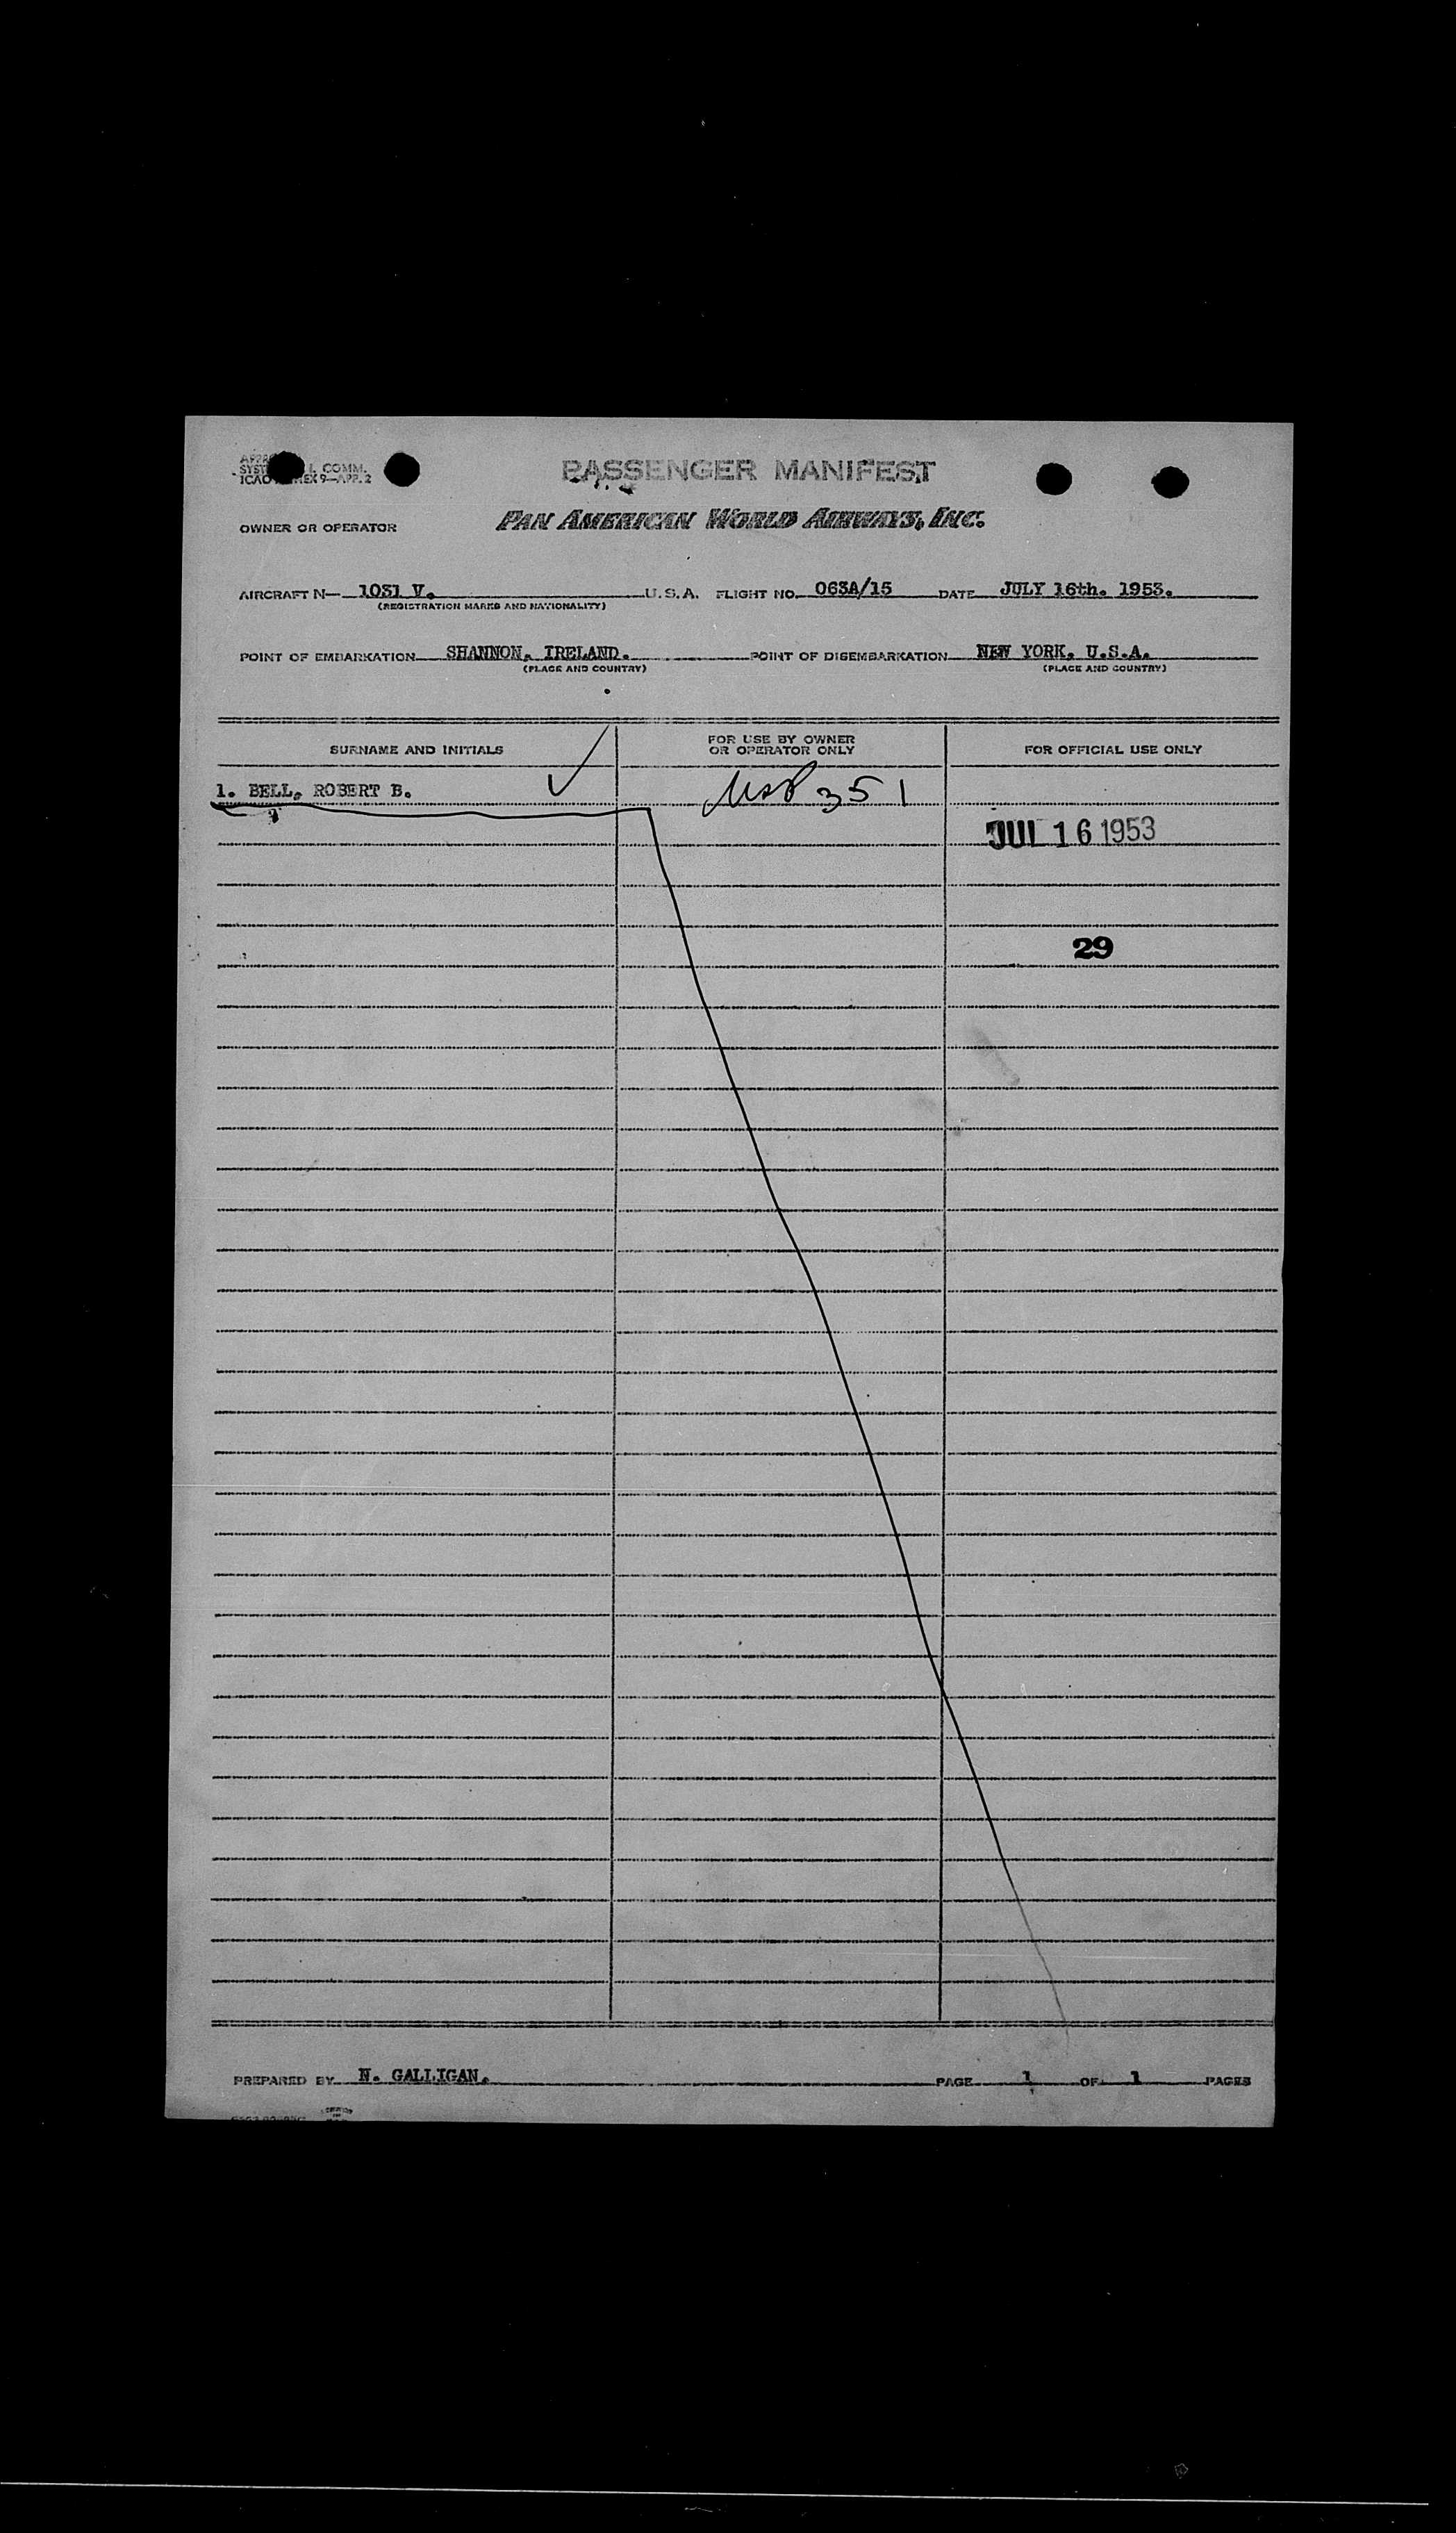 SYST L COMM.
ICAO EX 9—APP. 2
PASSENGER MANIFEST
OWNER OR OPERATOR PAN AMERICAN WORLD AIRWAYS, INC.
AIRCRAFT N— 1031 V. U.S.A. FLIGHT NO. 063A/15 DATE JULY 16th. 1953.
(REGISTRATION MARKS AND NATIONALITY)
POINT OF EMBARKATION SHANNON, IRELAND. POINT OF DISEMBARKATION NEW YORK, U.S.A.
(PLACE AND COUNTRY) (PLACE AND COUNTRY)
SURNAME AND INITIALS
FOR USE BY OWNER
OR OPERATOR ONLY
FOR OFFICIAL USE ONLY
1. BELL, ROBERT B. 351
JUL 16 1953
29
PREPARED BY N. GALLIGAN. PAGE 1 OF 1 PAGES